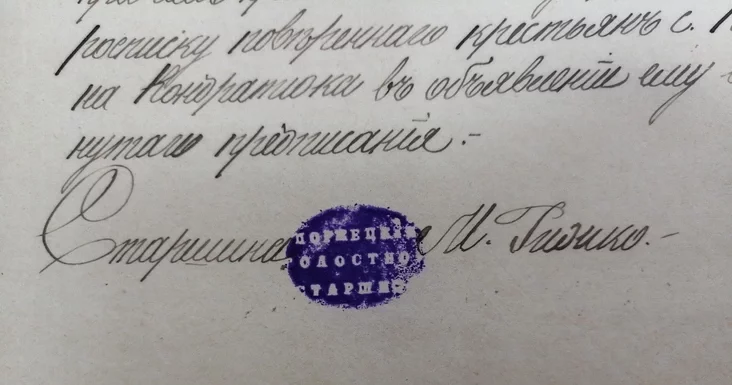 росписку повѣреннаго крестьянъ с.
на Кондратюка въ объявленіи ему
нутаго предписанія.-
Старшина М. Гизико.-
ПОРЖЕЦКІЙ
ОЛОСТНО
СТАРШИ